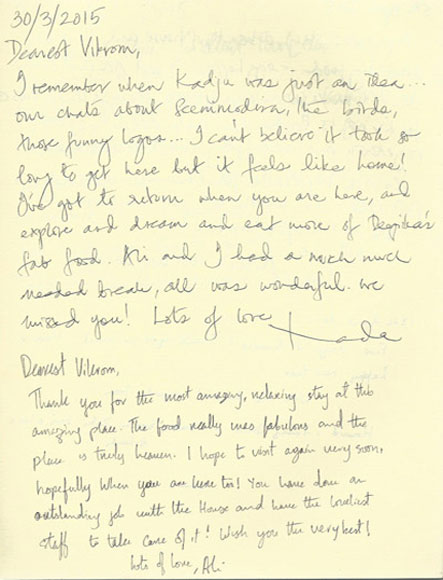 30/3/2015
Dearest Vikrom,
I remember when Kadju was just an idea...
our chats about the birds,
those funny logos... I can't believe it took so
long to get here but it feels like home!
I've got to return when you are here, and
explore and dream and eat more of
fab food. Ali and I had a much much
needed break, all was wonderful. We
missed you! Lots of love
Dearest Vikrom,
Thank you for the most amazing, relaxing stay at this
amazing place. The food really was fabulous and the
place is truly heaven. I hope to visit again very soon,
hopefully when you are here too! You have done an
outstanding job with the House and have the loveliest
staff to take care of it! Wish you the very best!
Lots of love, Ali.